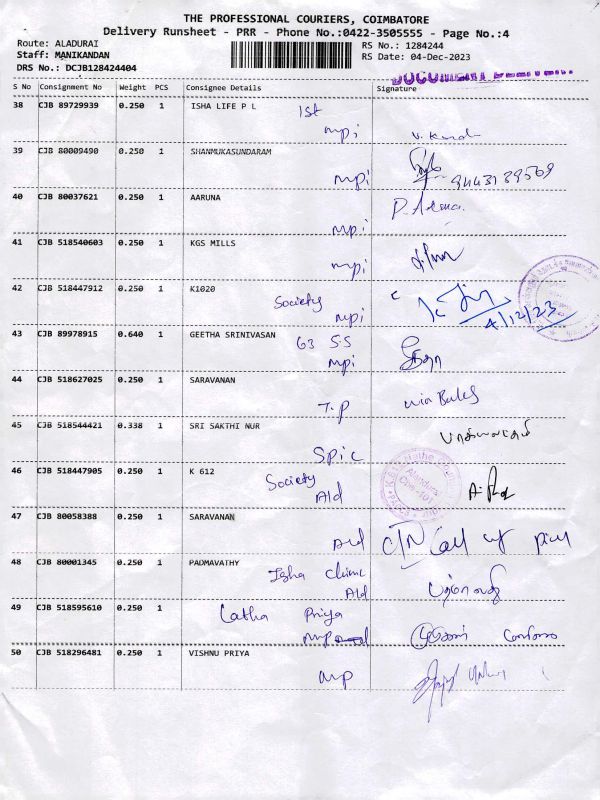 THE PROFESSIONAL COURIERS, COIMBATORE
Delivery Runsheet - PRR - Phone No.:0422-3505555 - Page No.:4
Route: ALADURAI RS No.: 1284244
Staff: MANIKANDAN RS Date: 04-Dec-2023
DRS No.: DCJB128424404
S No Consignment No Weight PCS Consignee Details Signature
38 CJB 89729939 0.250 1 ISHA LIFE P L 1st
mpi
39 CJB 80009490 0.250 1 SHANMUKASUNDARAM
mpi 9443139569
40 CJB 80037621 0.250 1 AARUNA
mpi
41 CJB 518540603 0.250 1 KGS MILLS
mpi
42 CJB 518447912 0.250 1 K1020
Society
mpi 4/12/23
43 CJB 89978915 0.640 1 GEETHA SRINIVASAN 63 S.S
mpi கீதா
44 CJB 518627025 0.250 1 SARAVANAN
T.P
45 CJB 518544421 0.338 1 SRI SAKTHI NUR
Spic
46 CJB 518447905 0.250 1 K 612
Society
Ald
47 CJB 80058388 0.250 1 SARAVANAN
Ald
48 CJB 80001345 0.250 1 PADMAVATHY
Isha Clinic
Ald
49 CJB 518595610 0.250 1 Latha Priya
50 CJB 518296481 0.250 1 VISHNU PRIYA
mp